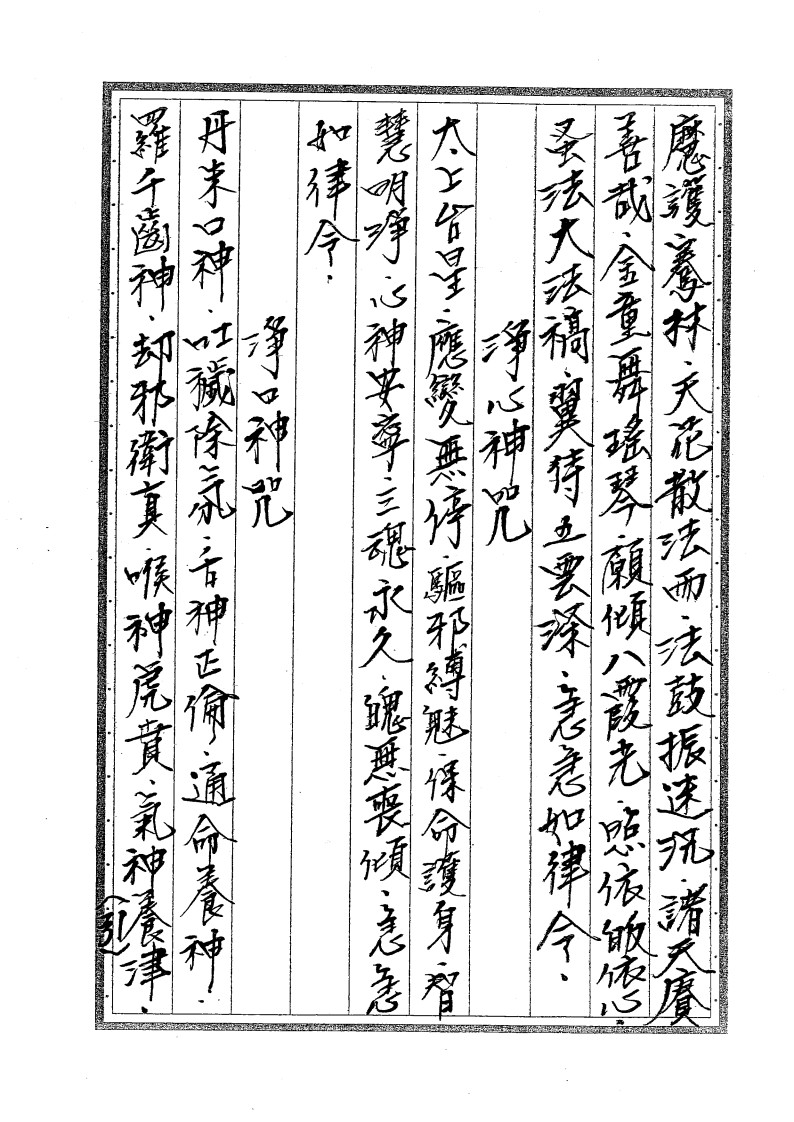 塵護騫林．天花散法雨．法鼓振迷沉．諸天賡
善哉．金童舞瑤琴．願傾八霞光．照依皈依心．
蚤法大法稿．翼侍五雲深．急急如律令．
淨心神咒
太上台星．應變無停．驅邪縛魅．保命護身．智
慧明淨．心神安寧．三魂永久．魄無喪傾．急急
如律令．
淨口神咒
丹朱口神．吐穢除氛．舌神正倫．通命養神．
羅千齒神．却邪衛真．喉神虎賁．氣神養津．
（引）